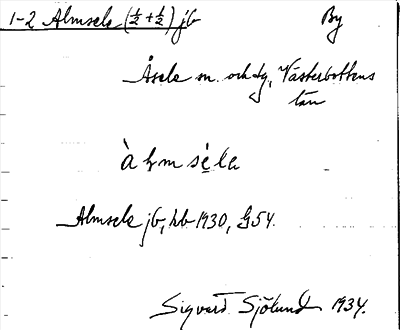 1-2 Almsele (½+½) jb By
Åsele sn. och tg, Västerbottens
län
À ḷm sè̩la
Almsele jb, hb 1930, G54.
Sigvard Sjölund 1934.